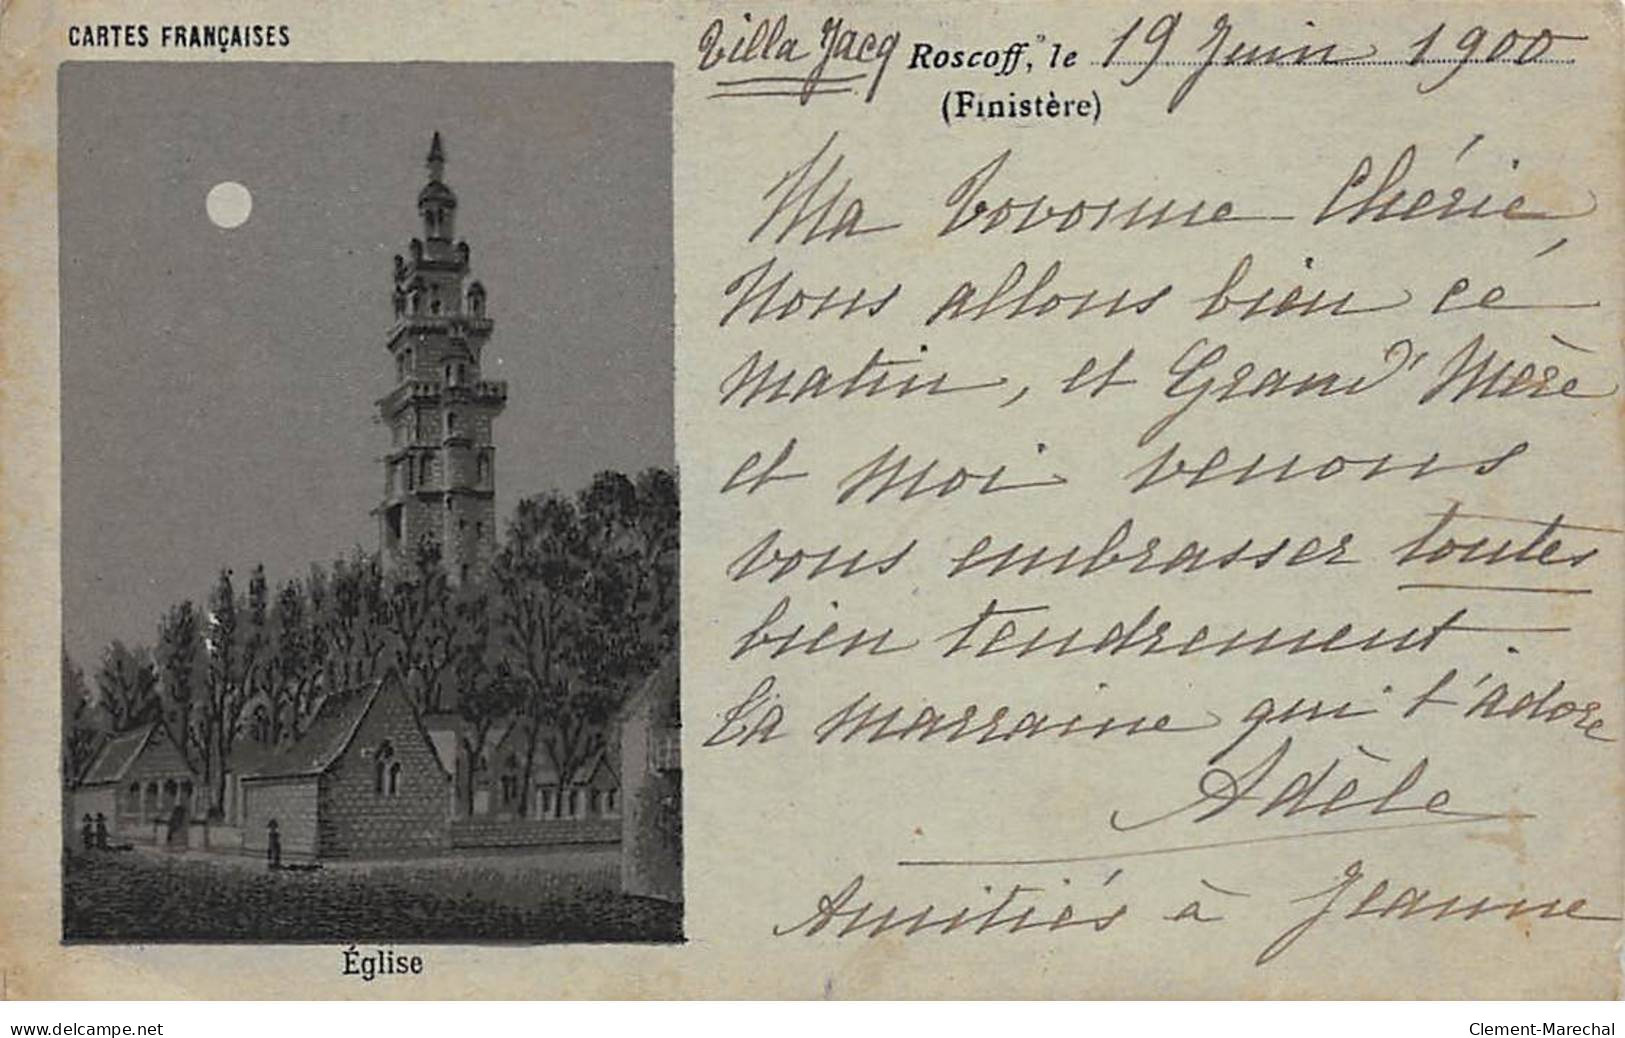 CARTES FRANÇAISES
Villa Jacq Roscoff, le 19 Juin 1900
(Finistère)
Ma Vovonne Chérie,
Nous allons bien cé
matin, et Grand' Mère
et moi venons
vous embrasser toutes
bien tendrement.
Ta marraine qui t'adore
Adèle
Amitiés à Jeanne
Église
www.delcampe.net
Clement-Marechal